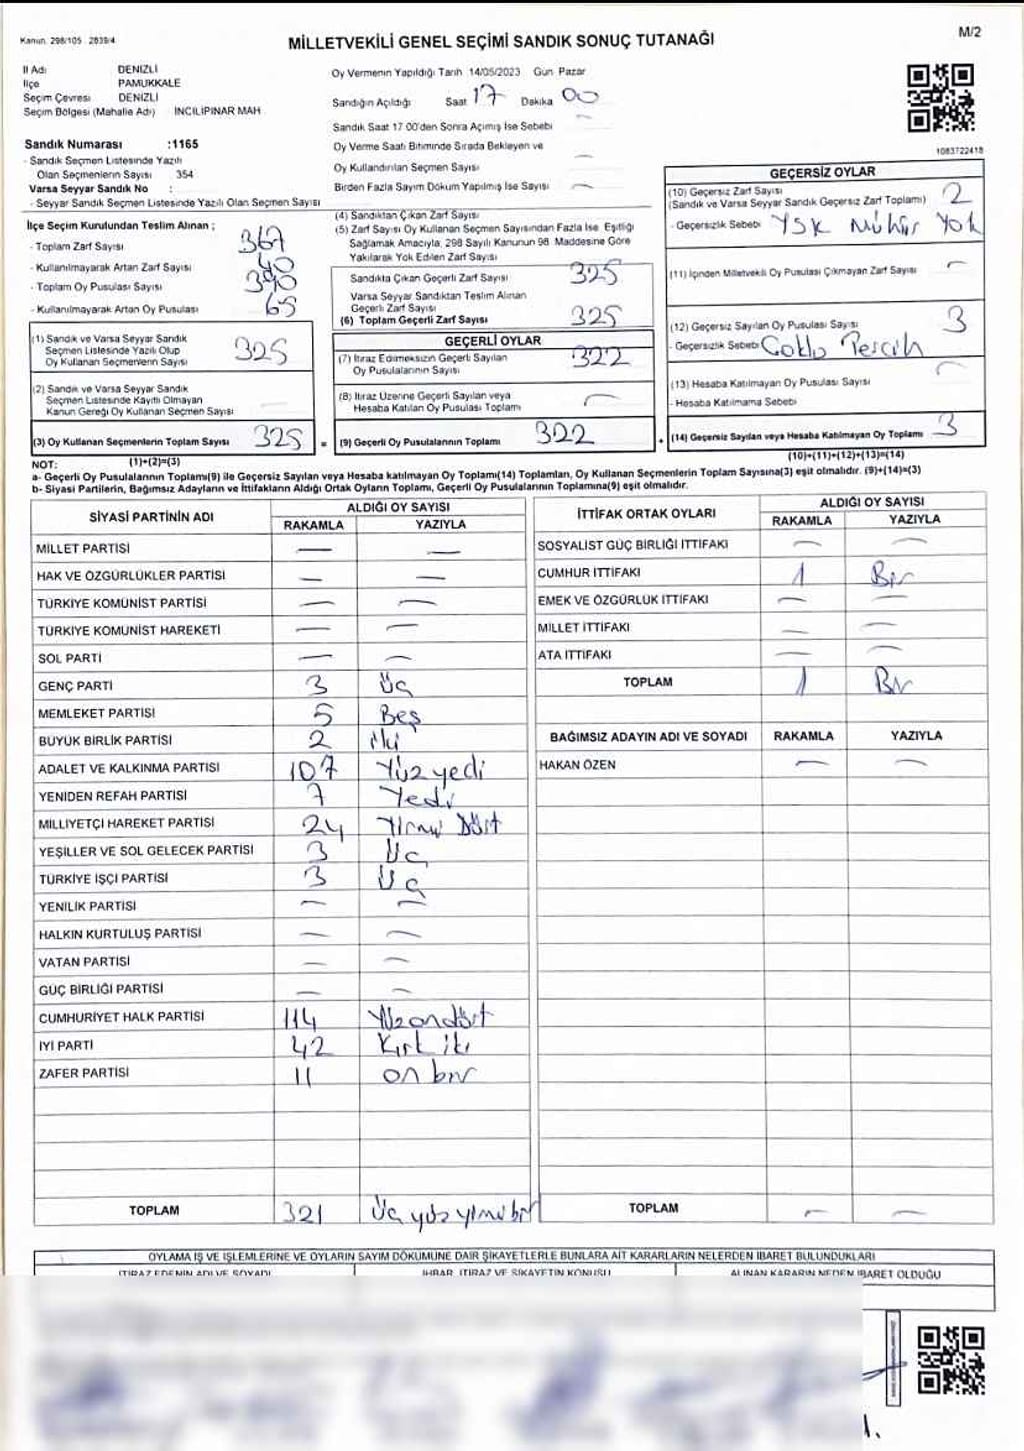 Kanun: 298/105 2839/4
M/2
MİLLETVEKİLİ GENEL SEÇİMİ SANDIK SONUÇ TUTANAĞI
İl Adı DENİZLİ
İlçe PAMUKKALE
Seçim Çevresi DENİZLİ
Seçim Bölgesi (Mahalle Adı) İNCİLİPINAR MAH
Sandık Numarası :1165
- Sandık Seçmen Listesinde Yazılı
Olan Seçmenlerin Sayısı 354
Varsa Seyyar Sandık No :
- Seyyar Sandık Seçmen Listesinde Yazılı Olan Seçmen Sayısı
Oy Vermenin Yapıldığı Tarih 14/05/2023 Gün Pazar
Sandığın Açıldığı Saat 17 Dakika 00
Sandık Saat 17 00'den Sonra Açılmış İse Sebebi
Oy Verme Saati Bitiminde Sırada Bekleyen ve
Oy Kullandırılan Seçmen Sayısı
Birden Fazla Sayım Döküm Yapılmış İse Sayısı
1083722418
İlçe Seçim Kurulundan Teslim Alınan ;
- Toplam Zarf Sayısı 367
- Kullanılmayarak Artan Zarf Sayısı 40
- Toplam Oy Pusulası Sayısı 390
- Kullanılmayarak Artan Oy Pusulası 65
(1) Sandık ve Varsa Seyyar Sandık
Seçmen Listesinde Yazılı Olup
Oy Kullanan Seçmenlerin Sayısı 325
(2) Sandık ve Varsa Seyyar Sandık
Seçmen Listesinde Kayıtlı Olmayan
Kanun Gereği Oy Kullanan Seçmen Sayısı —
(3) Oy Kullanan Seçmenlerin Toplam Sayısı 325 =
(1)+(2)=(3)
(4) Sandıktan Çıkan Zarf Sayısı
(5) Zarf Sayısı Oy Kullanan Seçmen Sayısından Fazla İse, Eşitliği
Sağlamak Amacıyla, 298 Sayılı Kanunun 98. Maddesine Göre
Yakılarak Yok Edilen Zarf Sayısı
Sandıkta Çıkan Geçerli Zarf Sayısı 325
Varsa Seyyar Sandıktan Teslim Alınan
Geçerli Zarf Sayısı
(6) Toplam Geçerli Zarf Sayısı 325
GEÇERLİ OYLAR
(7) İtiraz Edilmeksizin Geçerli Sayılan
Oy Pusulalarının Sayısı 322
(8) İtiraz Üzerine Geçerli Sayılan veya
Hesaba Katılan Oy Pusulası Toplamı —
(9) Geçerli Oy Pusulalarının Toplamı 322 +
GEÇERSİZ OYLAR
(10) Geçersiz Zarf Sayısı 2
(Sandık ve Varsa Seyyar Sandık Geçersiz Zarf Toplamı)
- Geçersizlik Sebebi YSK Mühür Yok
(11) İçinden Milletvekili Oy Pusulası Çıkmayan Zarf Sayısı —
(12) Geçersiz Sayılan Oy Pusulası Sayısı 3
- Geçersizlik Sebebi
(13) Hesaba Katılmayan Oy Pusulası Sayısı —
- Hesaba Katılmama Sebebi
(14) Geçersiz Sayılan veya Hesaba Katılmayan Oy Toplamı 3
(10)+(11)+(12)+(13)=(14)
NOT:
a- Geçerli Oy Pusulalarının Toplamı(9) ile Geçersiz Sayılan veya Hesaba katılmayan Oy Toplamı(14) Toplamları, Oy Kullanan Seçmenlerin Toplam Sayısına(3) eşit olmalıdır. (9)+(14)=(3)
b- Siyasi Partilerin, Bağımsız Adayların ve İttifakların Aldığı Ortak Oyların Toplamı, Geçerli Oy Pusulalarının Toplamına(9) eşit olmalıdır.
SİYASİ PARTİNİN ADI ALDIĞI OY SAYISI
RAKAMLA YAZIYLA
MİLLET PARTİSİ — —
HAK VE ÖZGÜRLÜKLER PARTİSİ — —
TÜRKİYE KOMÜNİST PARTİSİ — —
TÜRKİYE KOMÜNİST HAREKETİ — —
SOL PARTİ — —
GENÇ PARTİ 3 Üç
MEMLEKET PARTİSİ 5 Beş
BÜYÜK BİRLİK PARTİSİ 2 iki
ADALET VE KALKINMA PARTİSİ 107 Yüz yedi
YENİDEN REFAH PARTİSİ 7 Yedi
MİLLİYETÇİ HAREKET PARTİSİ 24 Yirmi Dört
YEŞİLLER VE SOL GELECEK PARTİSİ 3 Üç
TÜRKİYE İŞÇİ PARTİSİ 3 Üç
YENİLİK PARTİSİ — —
HALKIN KURTULUŞ PARTİSİ — —
VATAN PARTİSİ — —
GÜÇ BİRLİĞİ PARTİSİ — —
CUMHURİYET HALK PARTİSİ 114 Yüz ondört
İYİ PARTİ 42 Kırk iki
ZAFER PARTİSİ 11 on bir
TOPLAM 321 Üç yüz yirmi bir
İTTİFAK ORTAK OYLARI ALDIĞI OY SAYISI
RAKAMLA YAZIYLA
SOSYALİST GÜÇ BİRLİĞİ İTTİFAKI — —
CUMHUR İTTİFAKI 1 Bir
EMEK VE ÖZGÜRLÜK İTTİFAKI — —
MİLLET İTTİFAKI — —
ATA İTTİFAKI — —
TOPLAM 1 Bir
BAĞIMSIZ ADAYIN ADI VE SOYADI RAKAMLA YAZIYLA
HAKAN ÖZEN — —
TOPLAM — —
OYLAMA İŞ VE İŞLEMLERİNE VE OYLARIN SAYIM DÖKÜMÜNE DAİR ŞİKAYETLERLE BUNLARA AİT KARARLARIN NELERDEN İBARET BULUNDUKLARI
İTİRAZ EDENİN ADI VE SOYADI İHBAR, İTİRAZ VE ŞİKAYETİN KONUSU ALINAN KARARIN NEDEN İBARET OLDUĞU